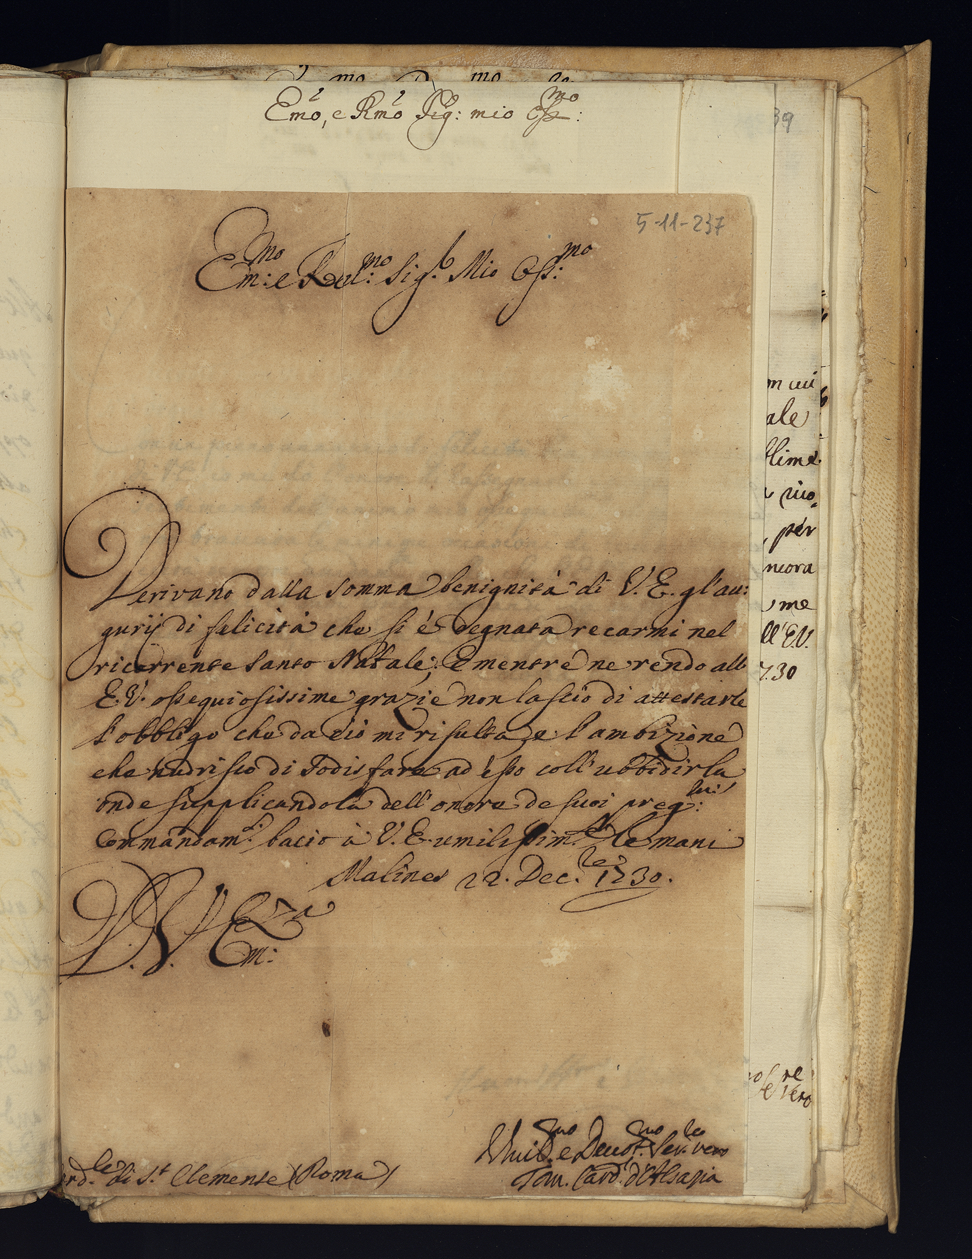 Em̃o, e Rm̃o Sig.r mio Oss.mo:
39
5-11-237
Em:mo e Rev:mo Sig.r Mio Oss:mo
Derivano dalla somma benignità di V. E. gl'au:
gurij di felicità che si è degnata recarmi nel
ricorrente Santo Natale; E mentre ne rendo all
E. V. ossequiosissime grazie non lascio di attestarle
l'obbligo che da ciò mi risulta, e l'ambizione
che nudrisco di sodisfare ad esso coll'ubbidirla
onde supplicandola dell'onore de suoi preg:mi
Commandam.ti bacio à V. E. umilissim.te le mani
Malines 22. Dec.bre 1730.
D. V. Em:za
di S.t Clemente (Roma)
e Devot.mo Ser.re vero
Tom. Card. d'Alsazia
ale
per
ncora
me
ll'E.V.
730
re
vero